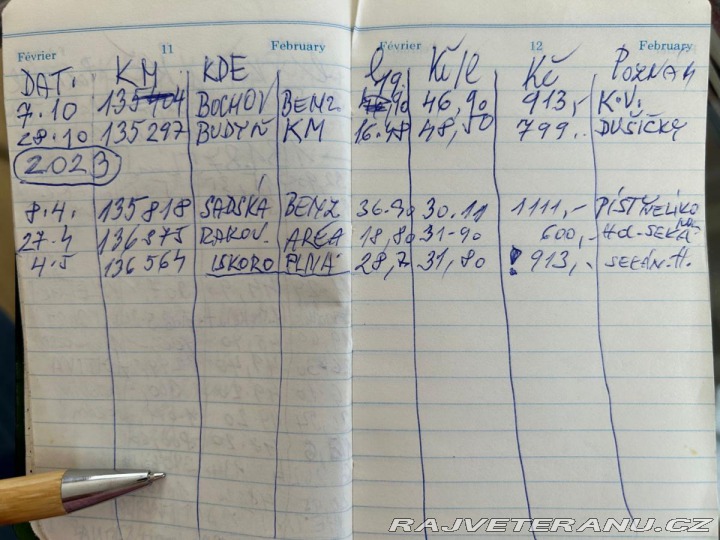 Février 11 February Février 12 February
DAT. KM KDE Kč/l Kč POZNÁM
7.10 135 BOCHOV BENZ 46,90 913,- K.V.
28.10 135297 BUDYŇ KM 16.48 48,50 799.- DUŠIČKY
2023
8.4. 135818 SADSKÁ BENZ 36.90 30.11 1111,- PÍSTY VELIKO
NO
27.4 RAKOV. AREA 18,80 31-90 600,-
4.5 136564 SKORO PLNÁ 28,7 31,80 ! 913,- SEKÁN.H.
RAJVETERANU.CZ